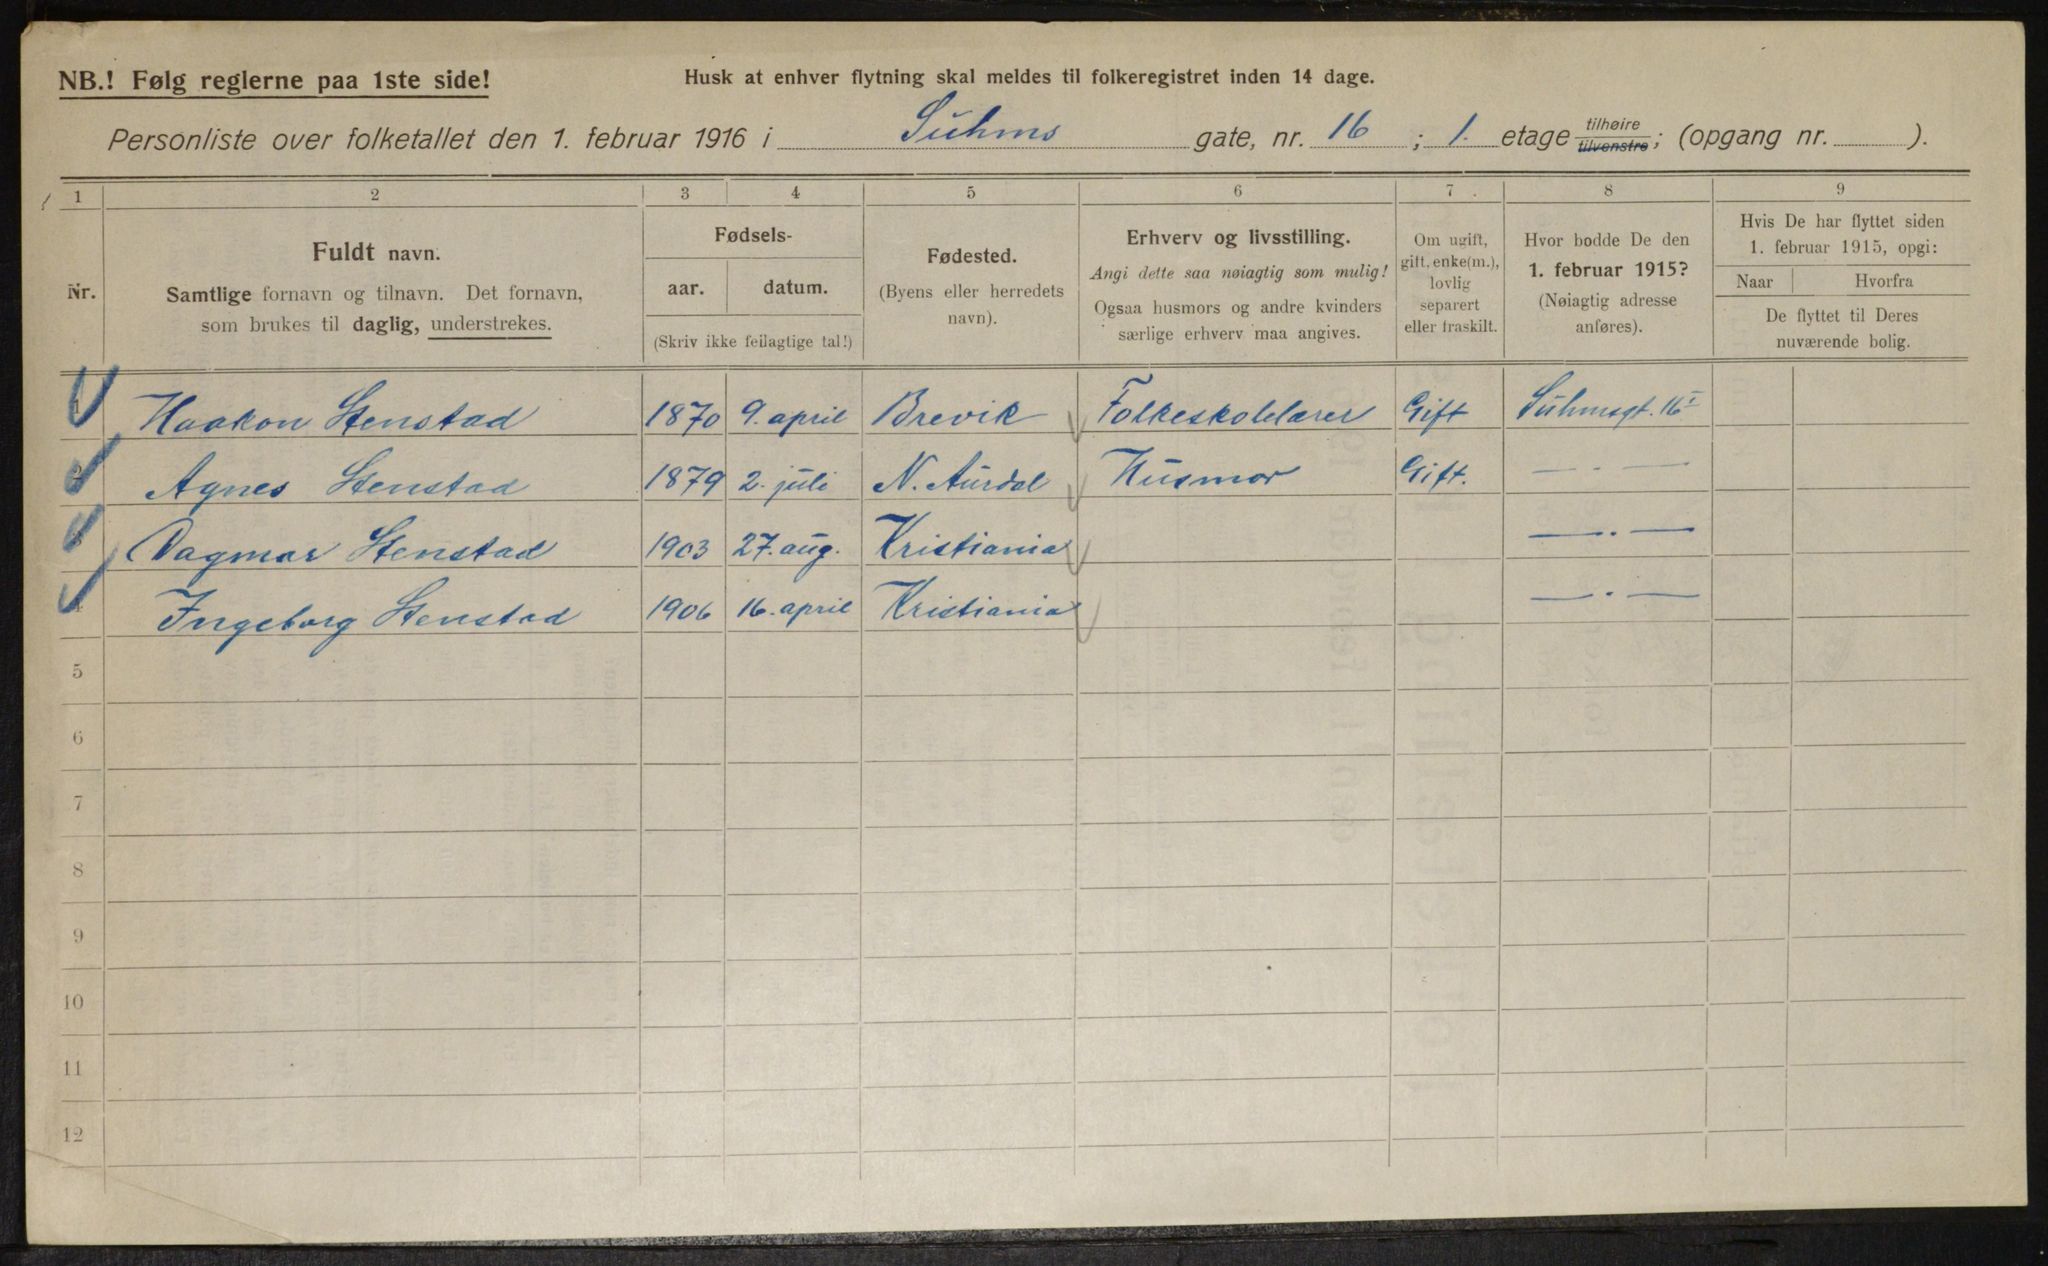 NB.! Følg reglerne paa 1ste side!
Husk at enhver flytning skal meldes til folkeregistret inden 14 dage.
Personliste over folketallet den 1. februar 1916 i Suhms gate, nr. 16 ; 1. etage tilhøire tilvenstre; (opgang nr. ).
1 2 3 4 5 6 7 8 9
Nr.
Fuldt navn.
Samtlige fornavn og tilnavn. Det fornavn,
som brukes til daglig, understrekes.
Fødsels-
aar. datum.
(Skriv ikke feilagtige tal!)
Fødested.
(Byens eller herredets
navn).
Erhverv og livsstilling.
Angi dette saa nøiagtig som mulig!
Ogsaa husmors og andre kvinders
særlige erhverv maa angives.
Om ugift,
gift, enke(m.),
lovlig
separert
eller fraskilt.
Hvor bodde De den
1. februar 1915?
(Nøiagtig adresse
anføres).
Hvis De har flyttet siden
1. februar 1915, opgi:
Naar Hvorfra
De flyttet til Deres
nuværende bolig.
1 Haakon Stenstad 1870 9. april Brevik Folkeskolelærer Gift Suhmsgt. 16 I
2 Agnes Stenstad 1879 2. juli N. Aurdal Husmor Gift. — . —
3 Dagmar Stenstad 1903 27. aug. Kristiania — . —
4 Ingeborg Stenstad 1906 16. april Kristiania — . —
5
6
7
8
9
10
11
12